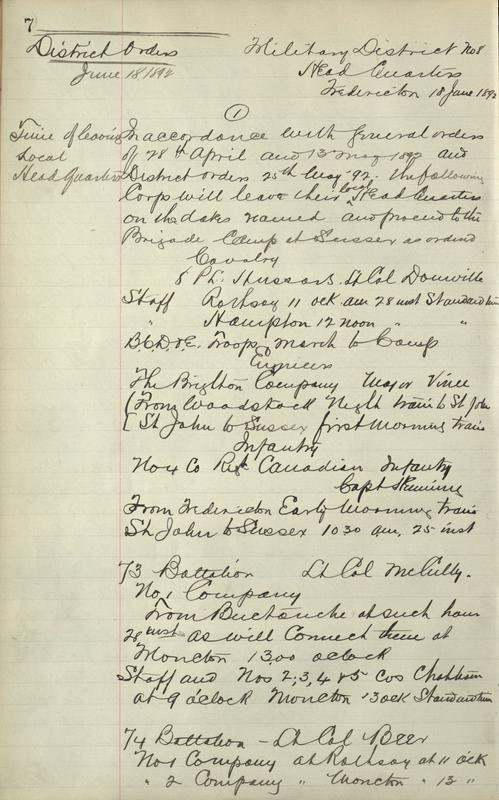 7
District Orders
June 18/1892
Military District No 8
Head Quarters
Fredericton 18 June 1892
1
Time of leaving
Local
Head Quarters
In accordance with General orders
of 28th April and 13 may 1892 and
District orders 25th May '92. the following
Corps will leave their local Head Quarters
on the dates named and proceed to the
Brigade Camp at Sussex as ordered
Cavalry
8 P.L. Hussars. Lt Col Domville
Staff Rothsay 11 ock am 28 inst Standard time
" Hampton 12 noon " "
B.C.D.&E. Troops March to Camp
Engineers
The Brighton Company Major Vince
(From Woodstock Night train to St John
(St John to Sussex first morning train
Infantry
No 4 Co Regt Canadian Infantry
Capt Hemming
From Fredericton Early Morning train
St John to Sussex 10 30 am, 25 inst
73 Battalion Lt Col McCully.
No. 1 Company
From Buctouche at such hour
28 inst as will Connect them at
Moncton 13,00 oclock
Staff and Nos 2, 3, 4 & 5 Cos Chatham
at 9 o'clock Moncton 13 ock Standard time
74 Battalion - Lt Col Beer
No 1 Company at Rothsay at 11 ock
" 2 Company " Moncton " 13 "